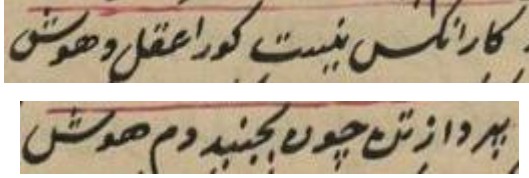 کار انکس نیست کورا عقل و هوش
پرداز تن چون بجنبد دم هوش